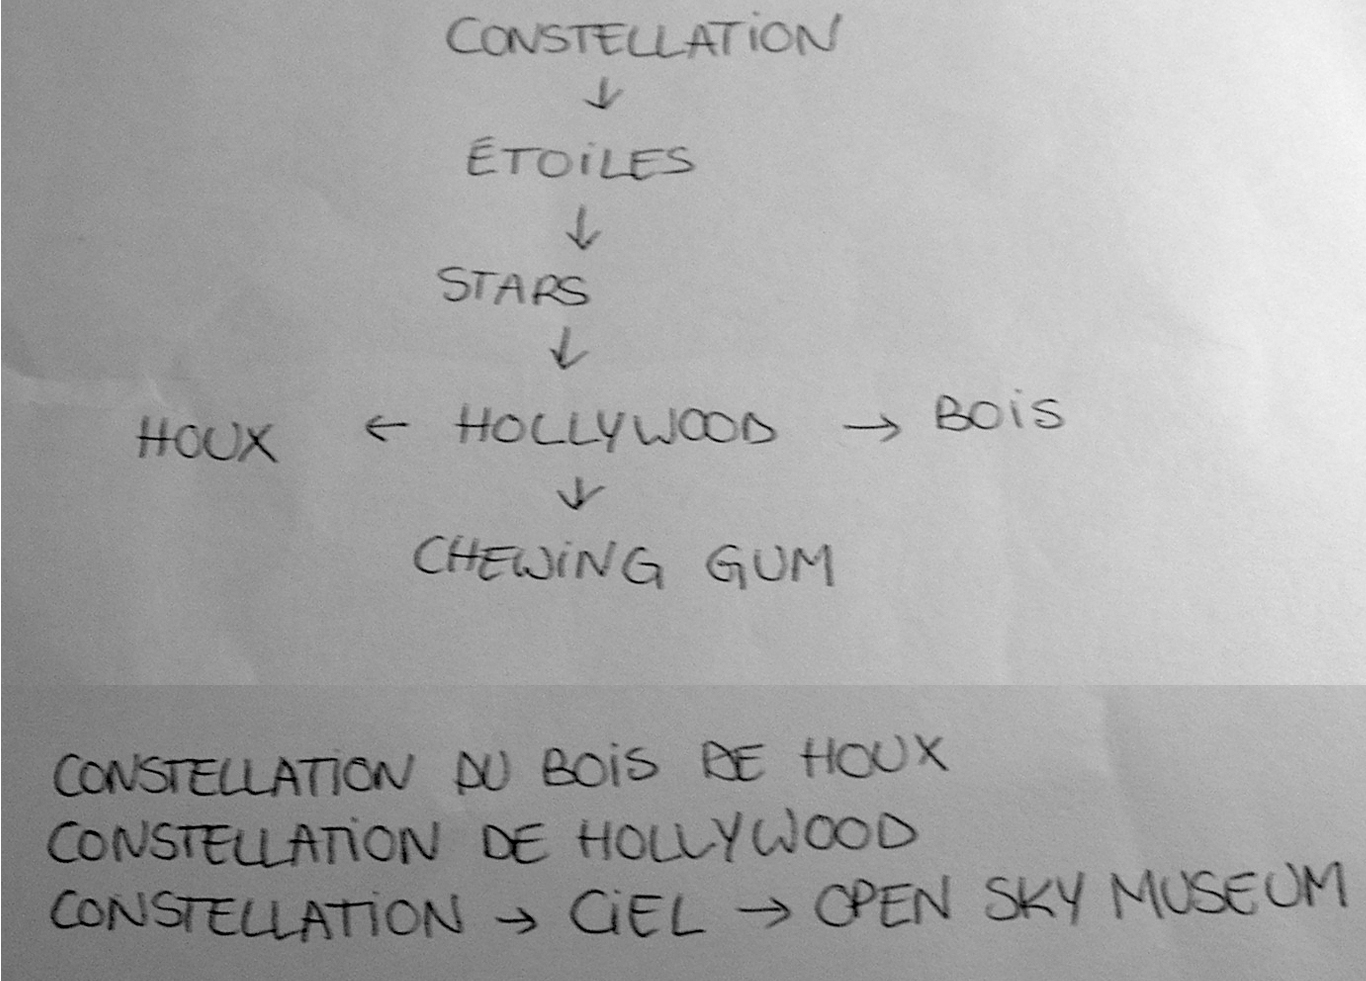 CONSTELLATION
↓
ÉTOILES
↓
STARS
↓
HOUX ← HOLLYWOOD → BOIS
↓
CHEWING GUM
CONSTELLATION DU BOIS DE HOUX
CONSTELLATION DE HOLLYWOOD
CONSTELLATION → CIEL → OPEN SKY MUSEUM